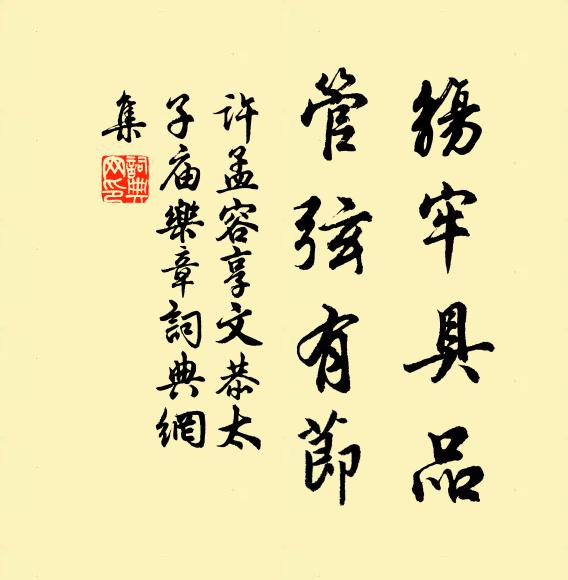 觴牢具品
管弦有節
許孟容享文恭太
子庙樂章詞典網
集
詞典网印